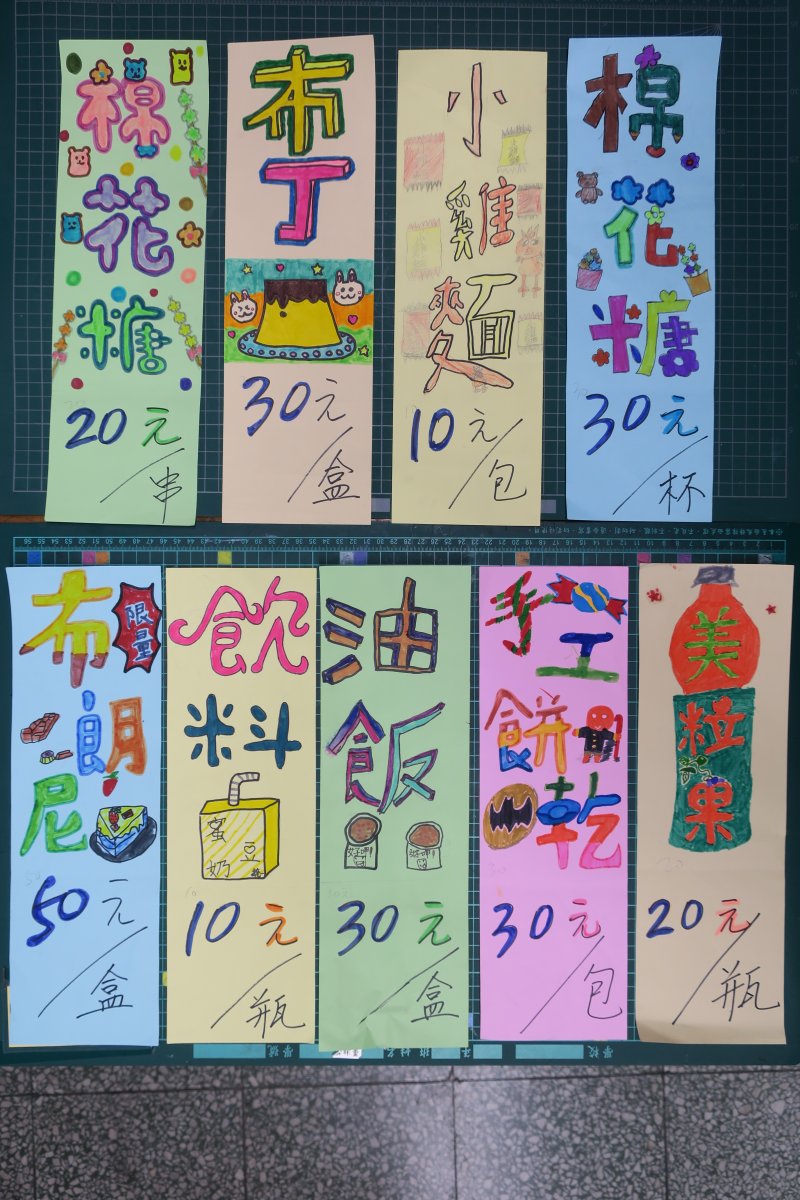 棉花糖
20元/串
布丁
30元/盒
小雞麵
10元/包
棉花糖
30元/杯
布朗尼
限量
50元/盒
飲料
蜜豆奶
10元/瓶
油飯
30元/盒
手工餅乾
30元/包
美粒果
20元/瓶